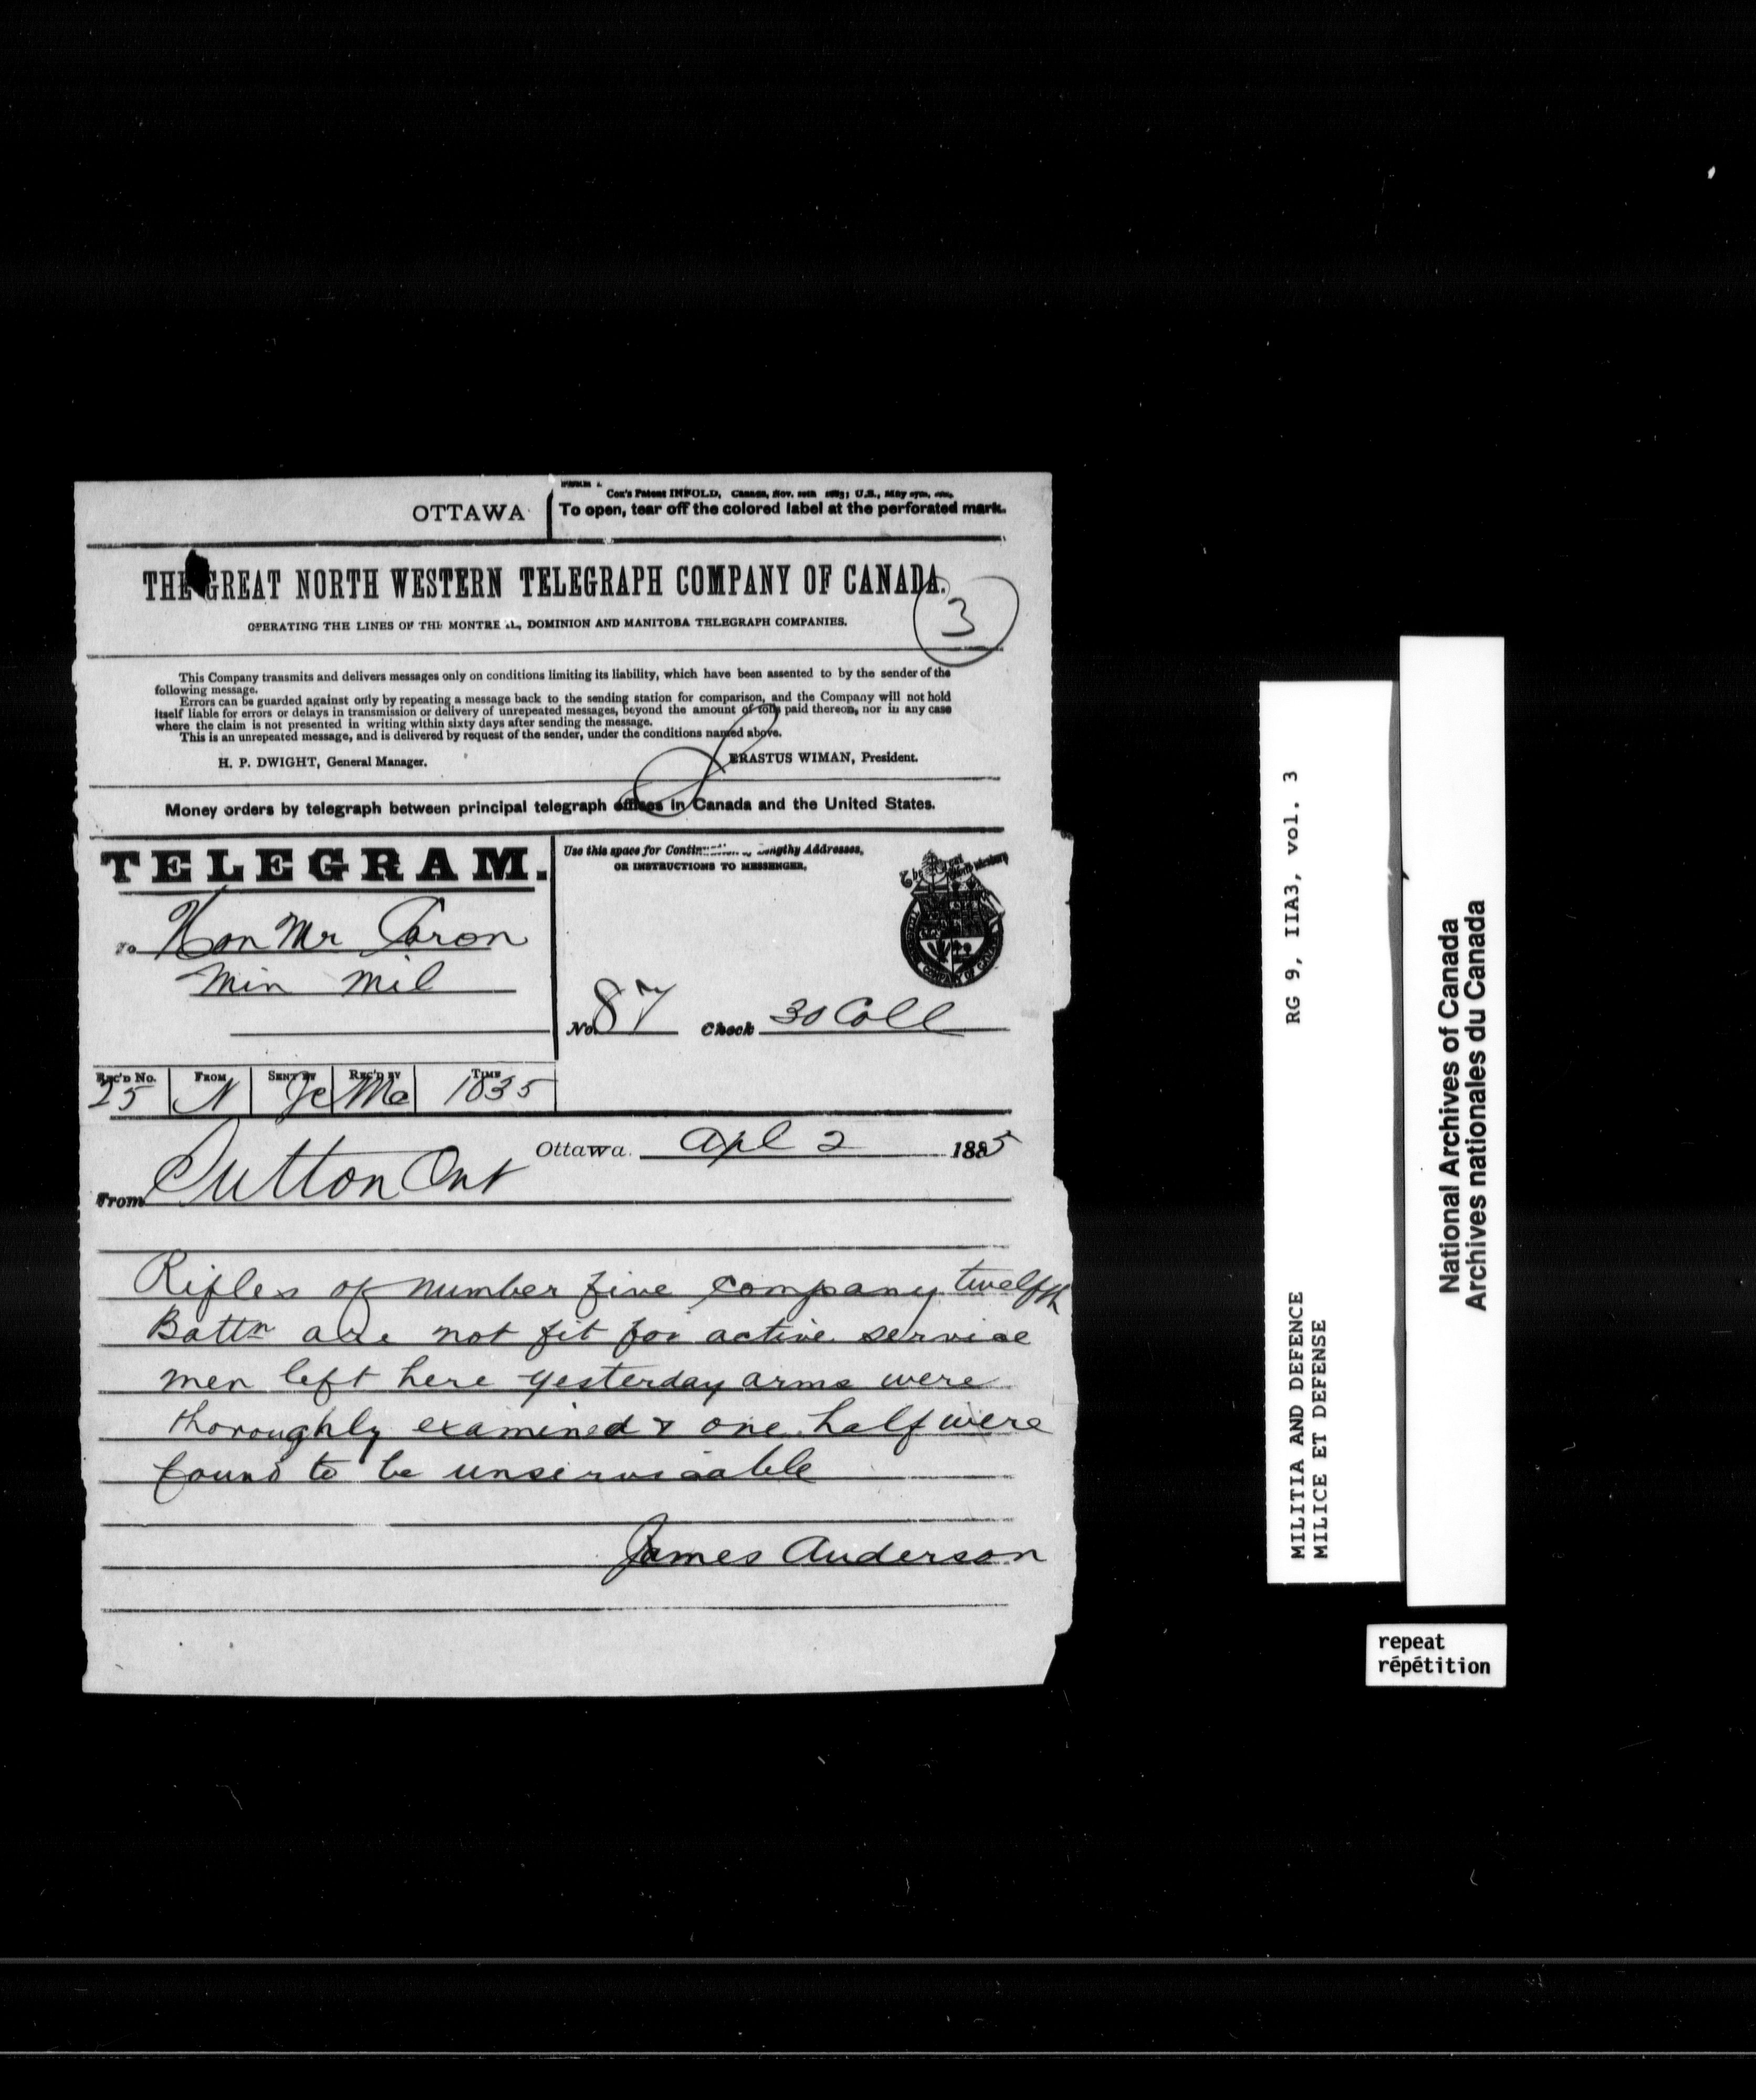 OTTAWA
Cox's Patent INFOLD, Canada, Nov. U.S., May
To open, tear off the colored label at the perforated mark.
THE GREAT NORTH WESTERN TELEGRAPH COMPANY OF CANADA.
3
OPERATING THE LINES OF THE MONTREAL, DOMINION AND MANITOBA TELEGRAPH COMPANIES.
This Company transmits and delivers messages only on conditions limiting its liability, which have been assented to by the sender of the
following message.
Errors can be guarded against only by repeating a message back to the sending station for comparison, and the Company will not hold
itself liable for errors or delays in transmission or delivery of unrepeated messages, beyond the amount of tolls paid thereon, nor in any case
where the claim is not presented in writing within sixty days after sending the message.
This is an unrepeated message, and is delivered by request of the sender, under the conditions named above.
H. P. DWIGHT, General Manager.
ERASTUS WIMAN, President.
Money orders by telegraph between principal telegraph offices in Canada and the United States.
TELEGRAM.
Use this space for Continuation of Lengthy Addresses,
OR INSTRUCTIONS TO MESSENGER.
To Hon Mr Caron
Min Mil
No. 87 Check 30 Coll
REC'D No. FROM SENT BY REC'D BY TIME
25 N Jc Ma 1835
Ottawa. Apl 2 1885
From Sutton Ont
Rifles of number five company twelfth
Battn are not fit for active service
men left here yesterday arms were
thoroughly examined & one half were
found to be unservicable
James Anderson
RG 9, IIA3, vol. 3
MILITIA AND DEFENCE
MILICE ET DEFENSE
National Archives of Canada
Archives nationales du Canada
repeat
répétition